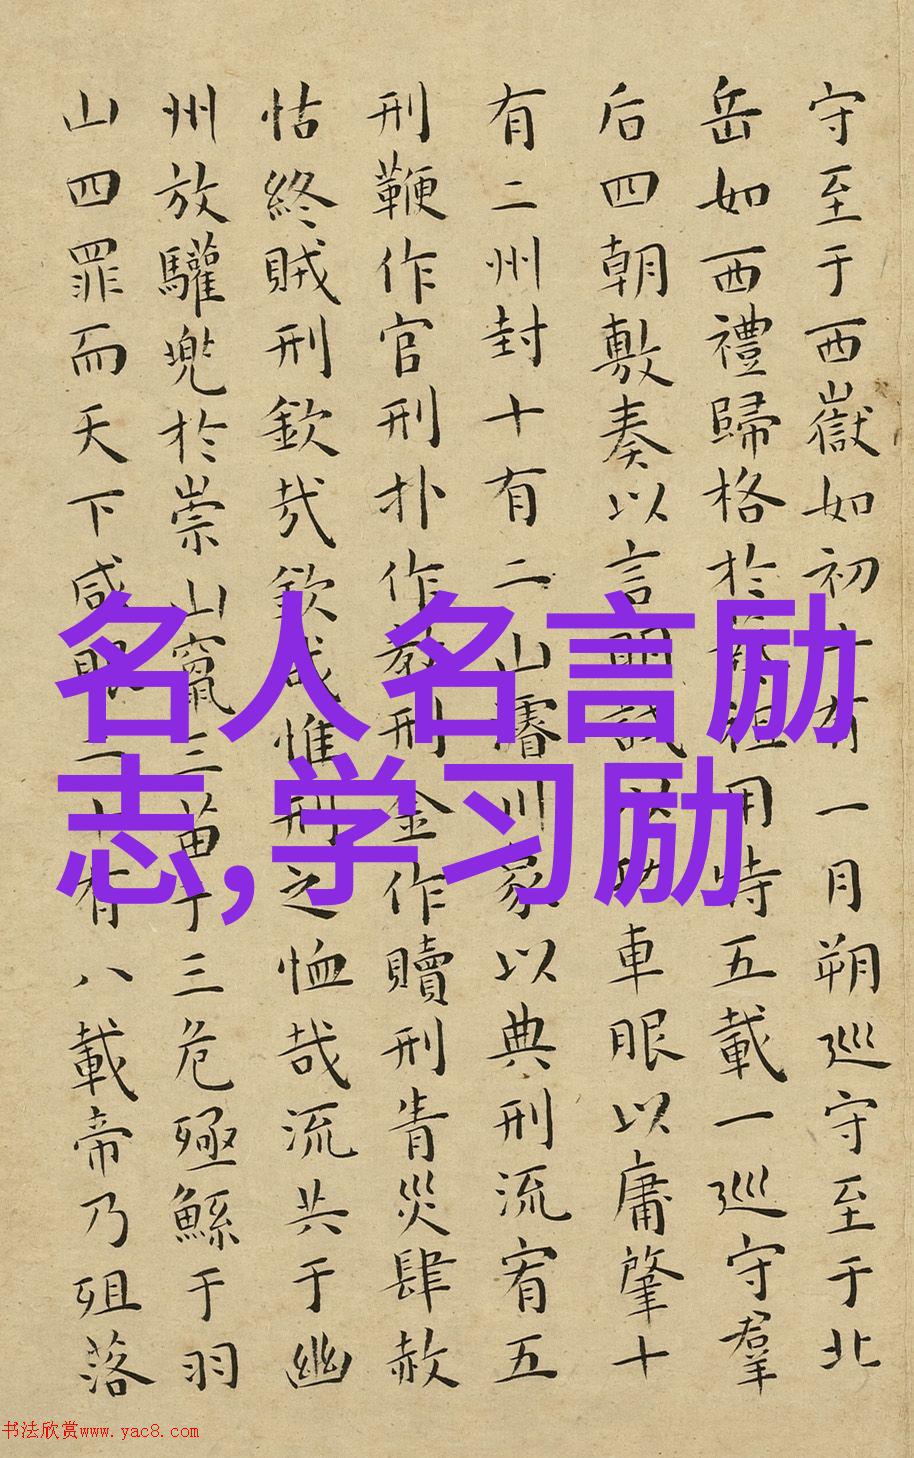 守至于西嶽如初十有一月朔巡守至于北
岳如西禮歸格於藝祖用特五載一巡守羣
后四朝敷奏以言明試以功車服以庸肇十
有二州封十有二山濬川象以典刑流宥五
刑鞭作官刑扑作教刑金作贖刑眚災肆赦
怙終賊刑欽哉欽哉惟刑之恤哉流共于幽
州放驩兜於崇山竄三苗于三危殛鯀于羽
山四罪而天下咸服二十有八載帝乃殂落
名人名言励
志,学习励
书法欣赏www.yac8.com